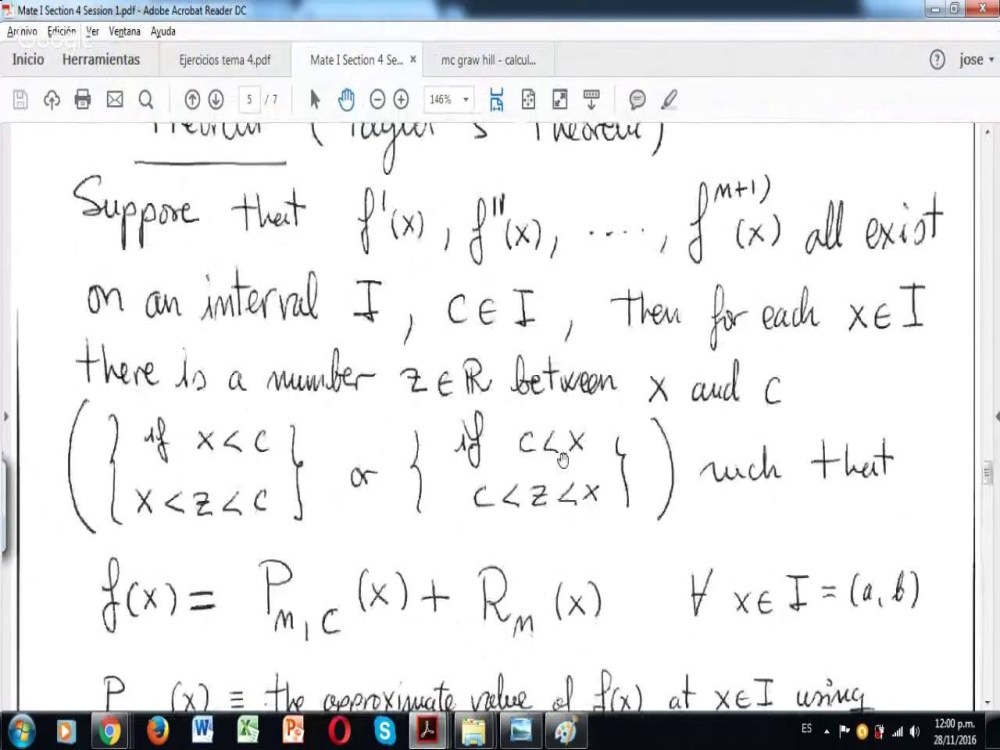 Mate I Section 4 Session 1.pdf - Adobe Acrobat Reader DC
Archivo Edición Ver Ventana Ayuda
Google
Inicio Herramientas Ejercicios tema 4.pdf Mate I Section 4 Se... × mc graw hill - calcul... ? jose
5 / 7 146%
Theorem (Taylor's Theorem)
Suppose that f'(x), f''(x), ....., f^(n+1)(x) all exist
on an interval I, c ∈ I, then for each x ∈ I
there is a number z ∈ ℝ between x and c
({if x < c} or {if c < x}) such that
x < z < c c < z < x
f(x) = P_{n,c}(x) + R_n(x) ∀ x ∈ I = (a, b)
P (x) ≡ the approximate value of f(x) at x ∈ I using
ES 12:00 p.m.
28/11/2016